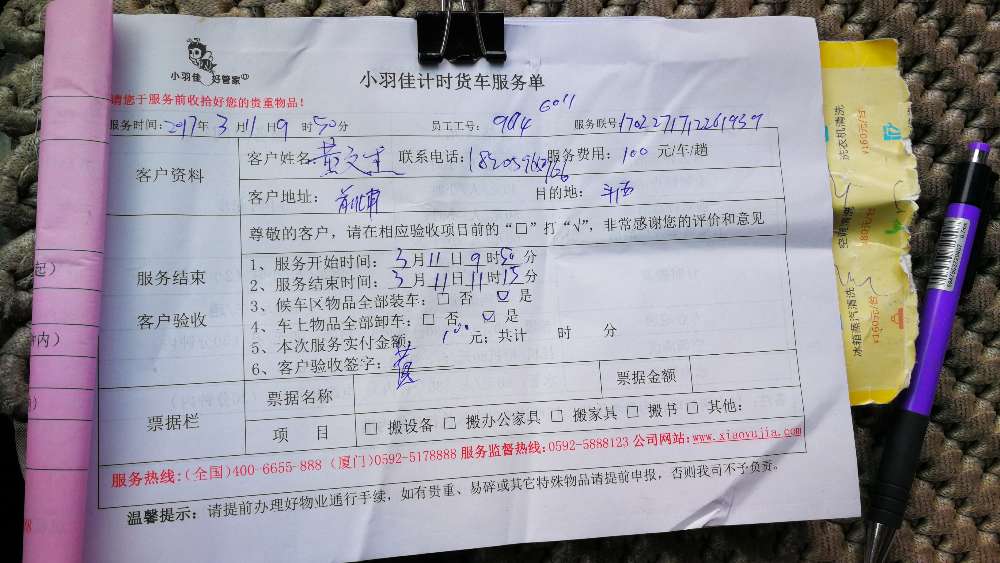 小羽佳 好管家
小羽佳计时货车服务单
请您于服务前收拾好您的贵重物品!
服务时间:2017年3月11日9时50分 员工工号: 904 6011 服务联号:
客户资料
客户姓名: 联系电话: 服务费用: 100 元/车/趟
客户地址: 前埔 目的地: 斗西
尊敬的客户,请在相应验收项目前的“□”打“√”,非常感谢您的评价和意见
服务结束
客户验收
1、服务开始时间: 3月11日9时50分
2、服务结束时间: 3月11日11时15分
3、候车区物品全部装车: □ 否 ☑ 是
4、车上物品全部卸车: □ 否 ☑ 是
5、本次服务实付金额, 100 元; 共计 时 分
6、客户验收签字:
票据栏
票据名称 票据金额
项 目 □ 搬设备 □ 搬办公家具 □ 搬家具 □ 搬书 □ 其他:
服务热线:(全国)400-6655-888 (厦门)0592-5178888 服务监督热线:0592-5888123 公司网站:www.xiaoyujia.com
温馨提示: 请提前办理好物业通行手续,如有贵重、易碎或其它特殊物品请提前申报,否则我司不予负责。
洗衣机清洗
¥160元/台
空调清洗
冰箱蒸汽清洗
¥160元/台